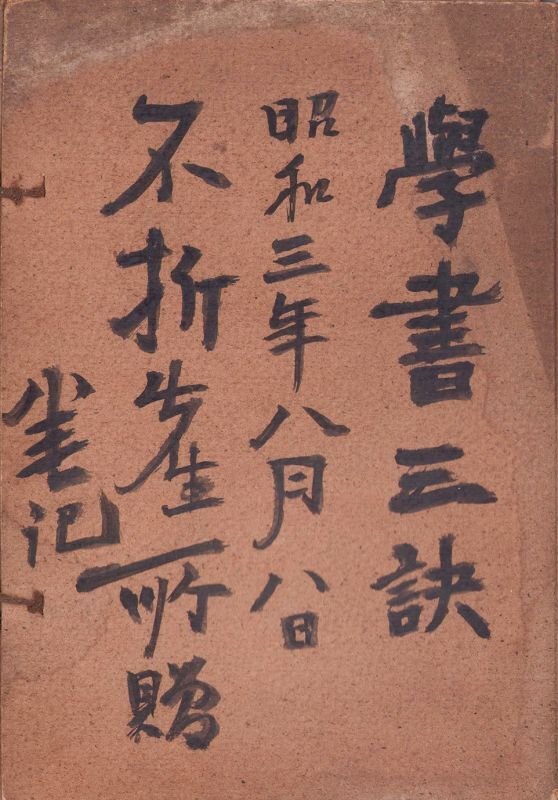 學書三訣
昭和三年八月八日
不折先生所贈
崔记